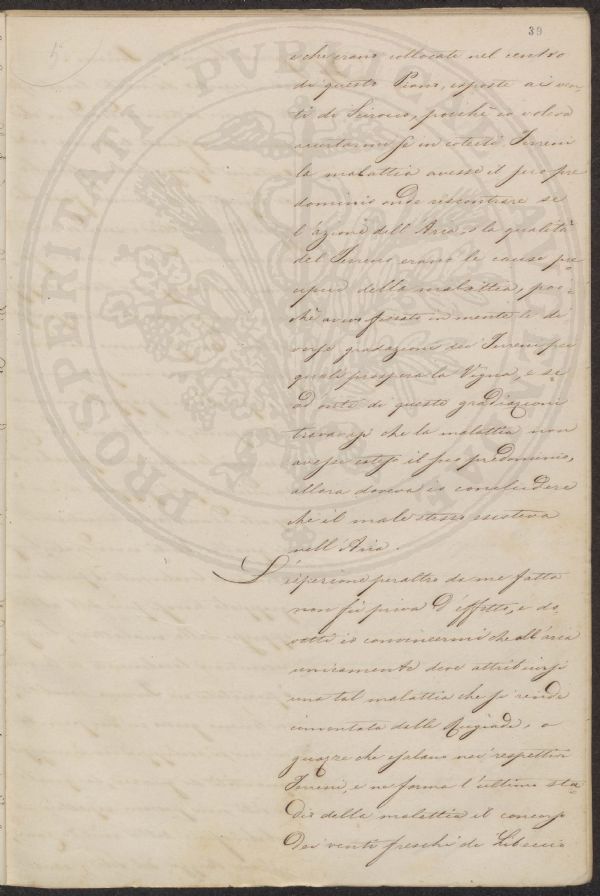 39
e che erano collocate nel centro
di questo Piano, esposte ai ven-
ti di Scirocco, poichè io voleva
accertarmi se in cotesti Terreni
la malattia avesse il suo pre
dominio onde riscontrare se
l'azione dell'Area, o la qualità
del Terreno erano le cause pre-
cipue della malattia, poi-
chè avevo fissato in mente le di
verse gradazioni dei Terreni su
quali prospera la Vigna, e se
ad onta di queste gradiazioni
trovavasi che la malattia non
avesse esteso il suo predominio,
allora doveva io concludere
che il male stesso esisteva
nell'Aria.
L'esperienze peraltro da me fatta
non fù priva d'effetto, e do-
vetti io convincermi che all'aria
unicamente deve attribuirsi
una tal malattia che si rende
aumentata dalle Rugiade, o
guazze che esalano nei respettivi
Terreni, e ne forma l'ultimo sta-
dio della malattia il concorso
dei venti freschi di Libeccio
PROSPERITATI PVBLICAE AVGENDAE